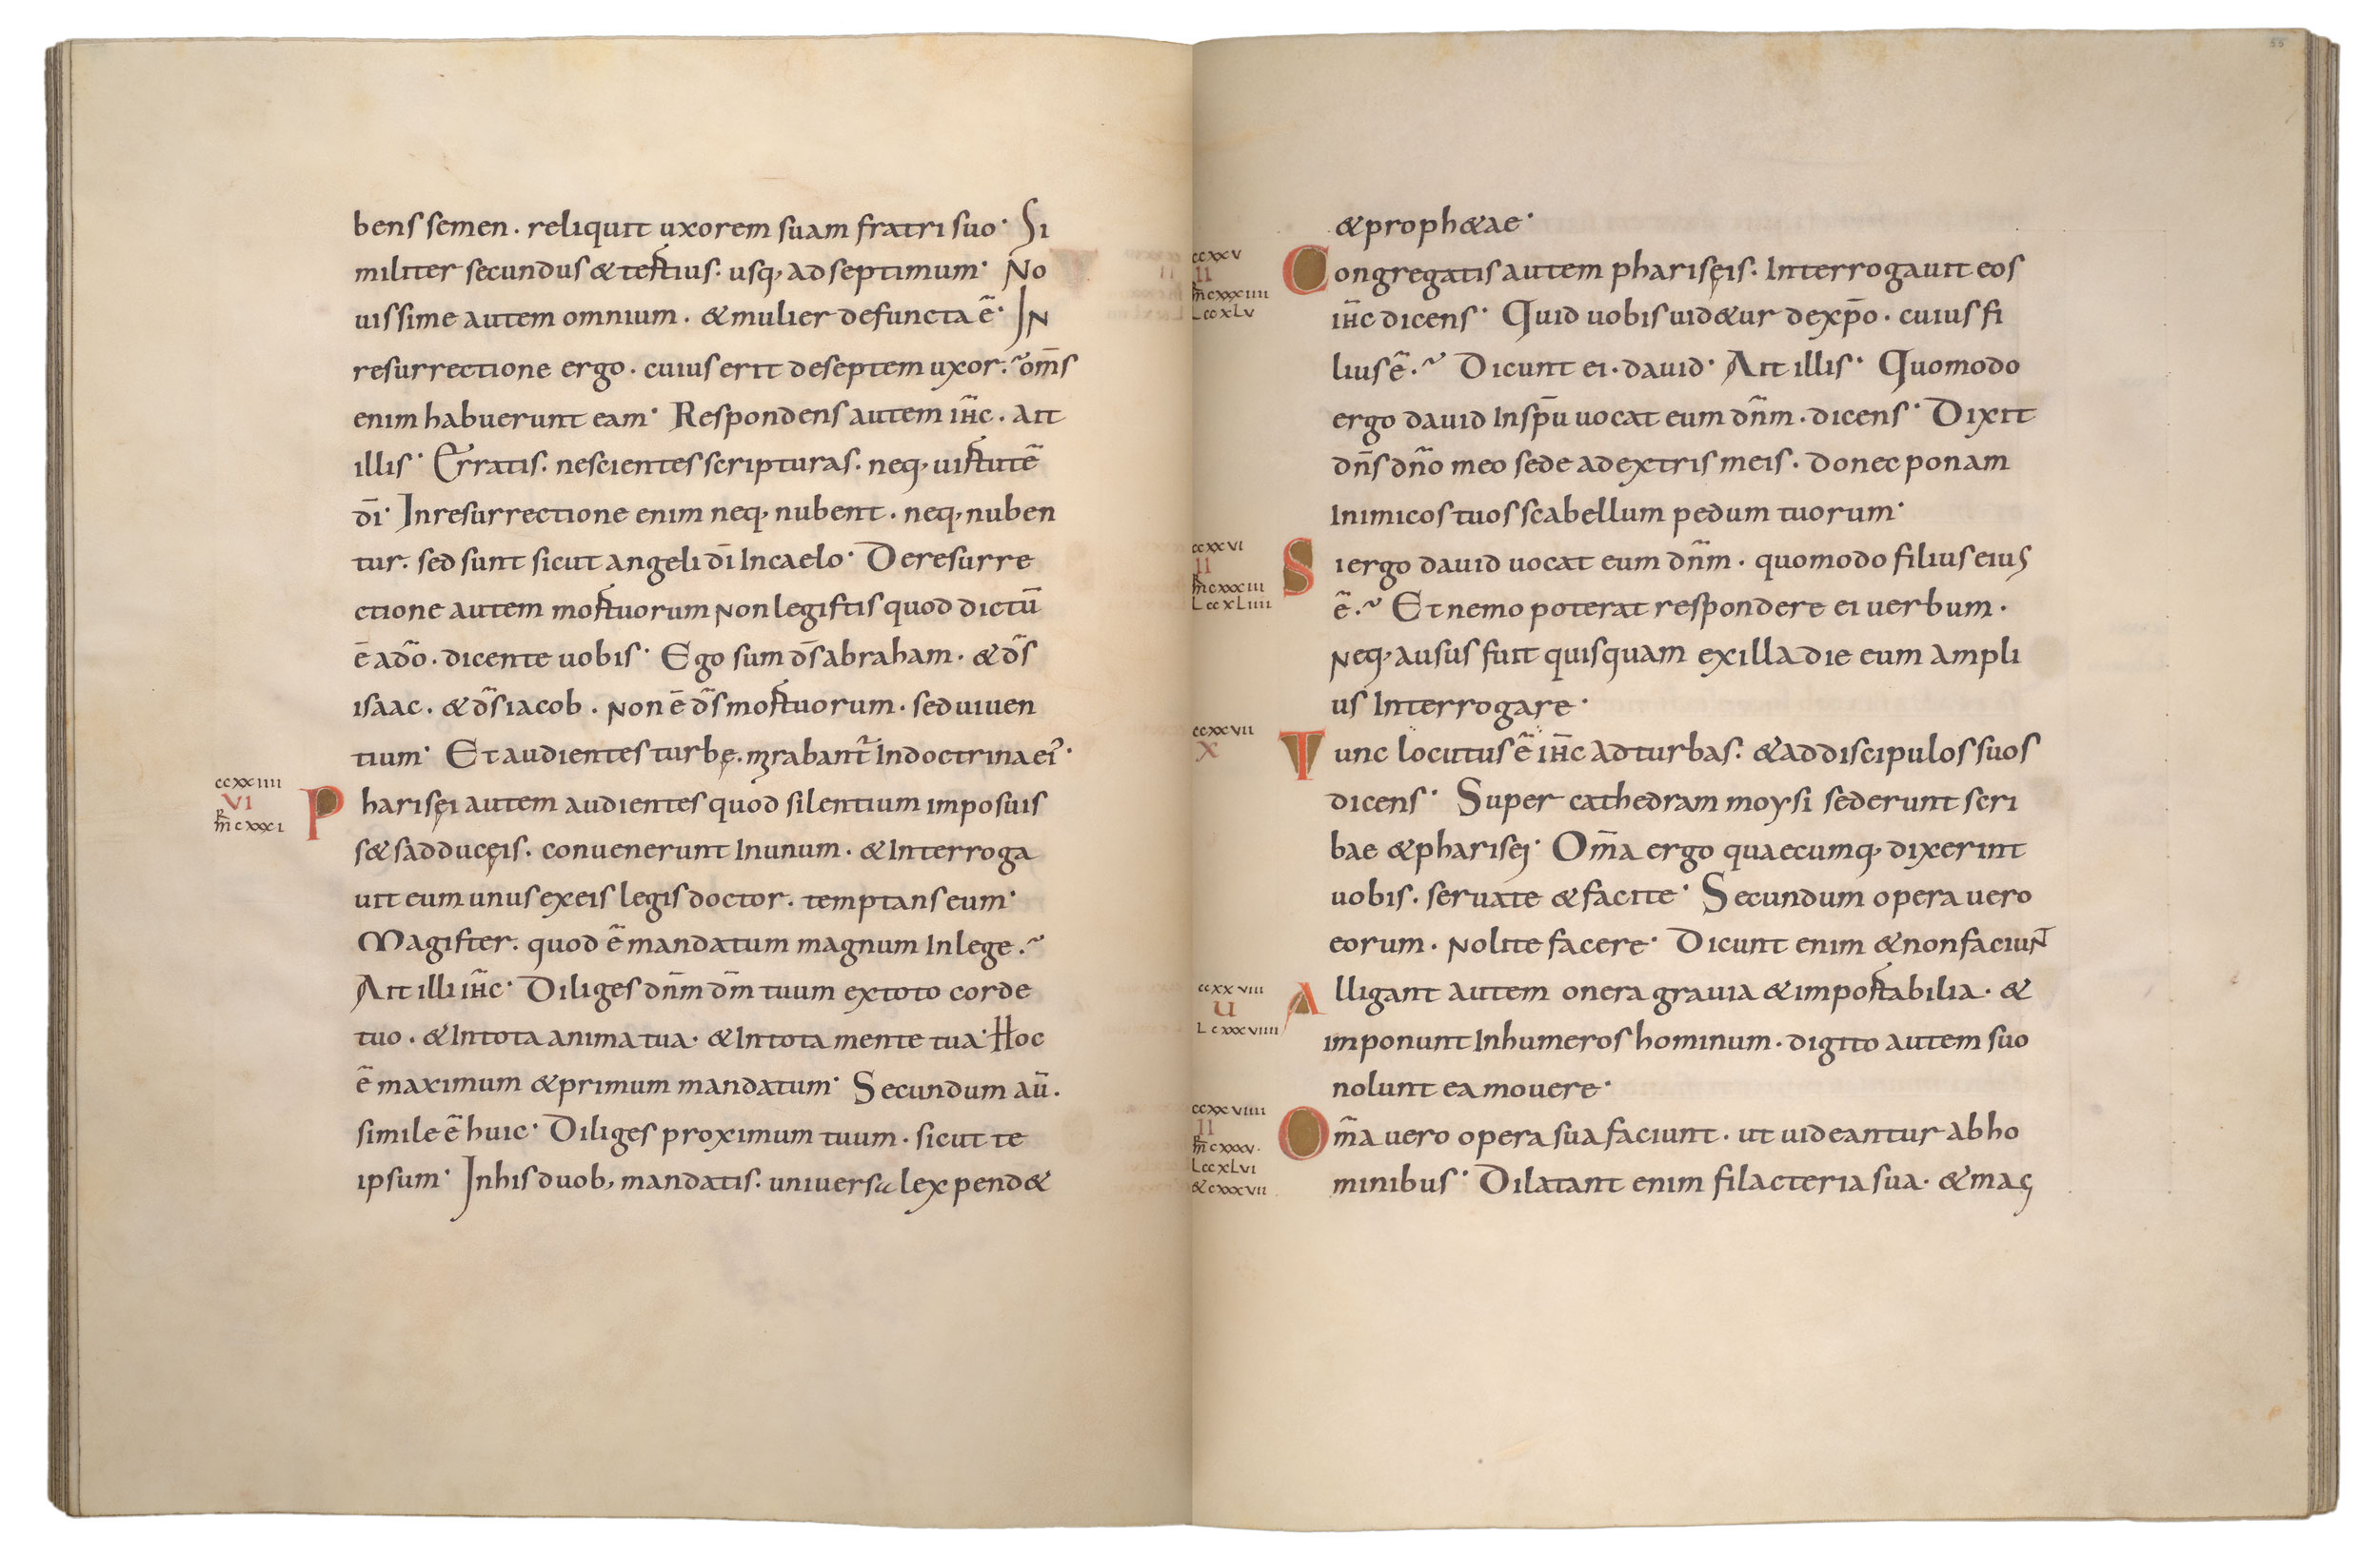 bens semen · reliquit uxorem suam fratri suo · Si
militer secundus & tertius · usq; ad septimum · No
uissime autem omnium · & mulier defuncta ē · In
resurrectione ergo · cuius erit de septem uxor · ? oms̄
enim habuerunt eam · Respondens autem ih̄c · ait
illis · Erratis · nescientes scripturas · neq; uirtutē
dī · In resurrectione enim neq; nubent · neq; nuben
tur · sed sunt sicut angeli dī In caelo · De resurre
ctione autem mortuorum non legistis quod dictū
ē a dō · dicente uobis · Ego sum ds̄ abraham · & ds̄
isaac · & ds̄ iacob · non ē ds̄ mortuorum · sed uiuen
tium · Et audientes turbę · mirabant̄ In doctrina ei' ·
ccxxiiii
VI
m̄r cxxxi
Pharisęi autem audientes quod silentium imposuis
s& sadducęis · conuenerunt In unum · & Interroga
uit eum unus ex eis legis doctor · temptans eum ·
Magister · quod ē mandatum magnum In lege · ?
Ait illi ih̄c · Diliges dn̄m dm̄ tuum ex toto corde
tuo · & In tota anima tua · & In tota mente tua · Hoc
ē maximum & primum mandatum · Secundum aū ·
simile ē huic · Diliges proximum tuum · sicut te
ipsum · In his duob; mandatis · uniuersa lex pend&
55
& proph&ae ·
ccxxv
II
m̄r cxxxiiii
L ccxLv
Congregatis autem pharisęis · Interrogauit eos
ih̄c dicens · Quid uobis uid&ur de xp̄o · cuius fi
lius ē · ? Dicunt ei · dauid · Ait illis · Quomodo
ergo dauid In sp̄u uocat eum dn̄m · dicens · Dixit
dn̄s dn̄o meo sede a dextris meis · donec ponam
Inimicos tuos scabellum pedum tuorum ·
ccxxvi
II
m̄r cxxxiii
L ccxLiiii
Si ergo dauid uocat eum dn̄m · quomodo filius eius
ē · ? Et nemo poterat respondere ei uerbum ·
Neq; ausus fuit quisquam ex illa die eum ampli
us Interrogare ·
ccxxvii
X
Tunc locutus ē ih̄c ad turbas · & ad discipulos suos
dicens · Super cathedram moysi sederunt scri
bae & pharisęi · Om̄a ergo quaecumq; dixerint
uobis · seruate & facite · Secundum opera uero
eorum · nolite facere · Dicunt enim & non faciunt
ccxxviii
U
L cxxxviiii
Alligant autem onera grauia & importabilia · &
imponunt In humeros hominum · digito autem suo
nolunt ea mouere ·
ccxxviiii
II
m̄r cxxxv
L ccxLvi
& cxxxvii
Om̄a uero opera sua faciunt · ut uideantur ab ho
minibus · Dilatant enim filacteria sua · & mag